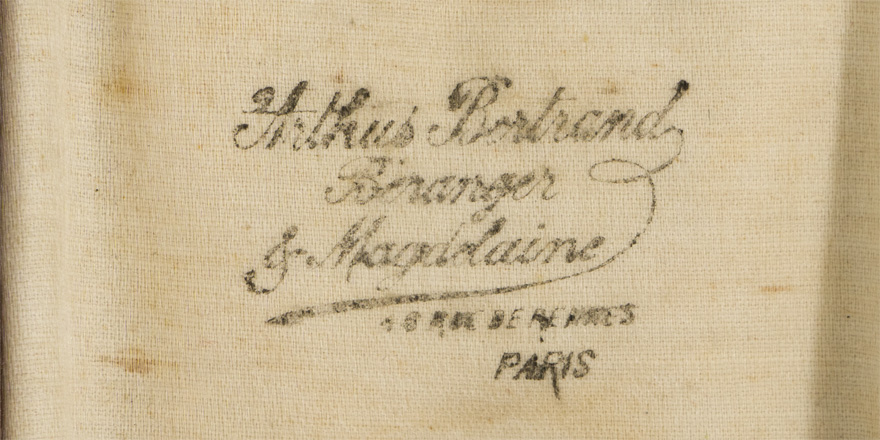 Arthus Bertrand
Béranger
& Magdelaine
RUE DE RENNES
PARIS